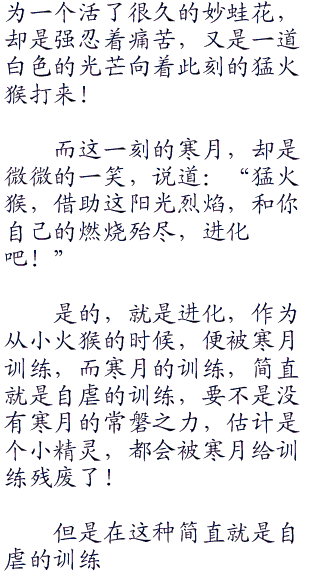 为一个活了很久的妙蛙花，
却是强忍着痛苦，又是一道
白色的光芒向着此刻的猛火
猴打来！
而这一刻的寒月，却是
微微的一笑，说道：“猛火
猴，借助这阳光烈焰，和你
自己的燃烧殆尽，进化
吧！”
是的，就是进化，作为
从小火猴的时候，便被寒月
训练，而寒月的训练，简直
就是自虐的训练，要不是没
有寒月的常磐之力，估计是
个小精灵，都会被寒月给训
练残废了！
但是在这种简直就是自
虐的训练